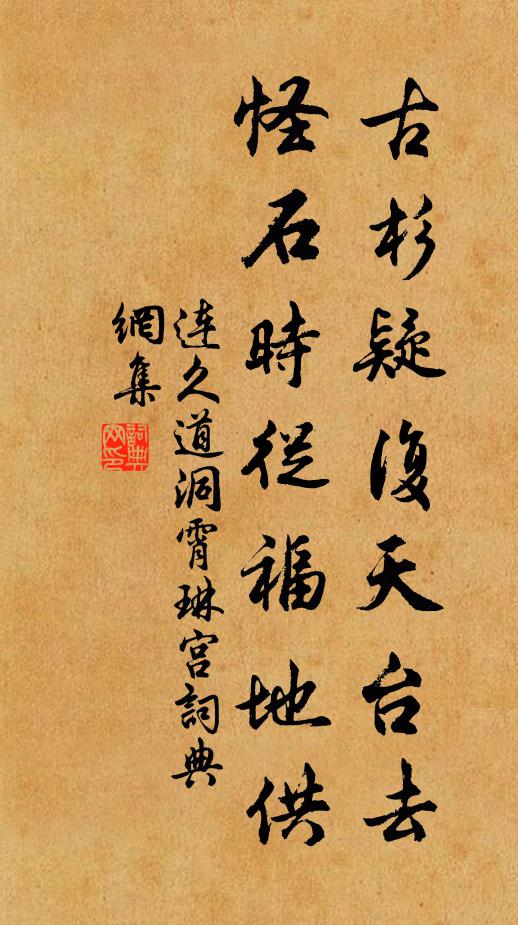 古杉疑復天台去
怪石時從福地供
連久道洞霄琳宮詞典
網集
詞典
网印